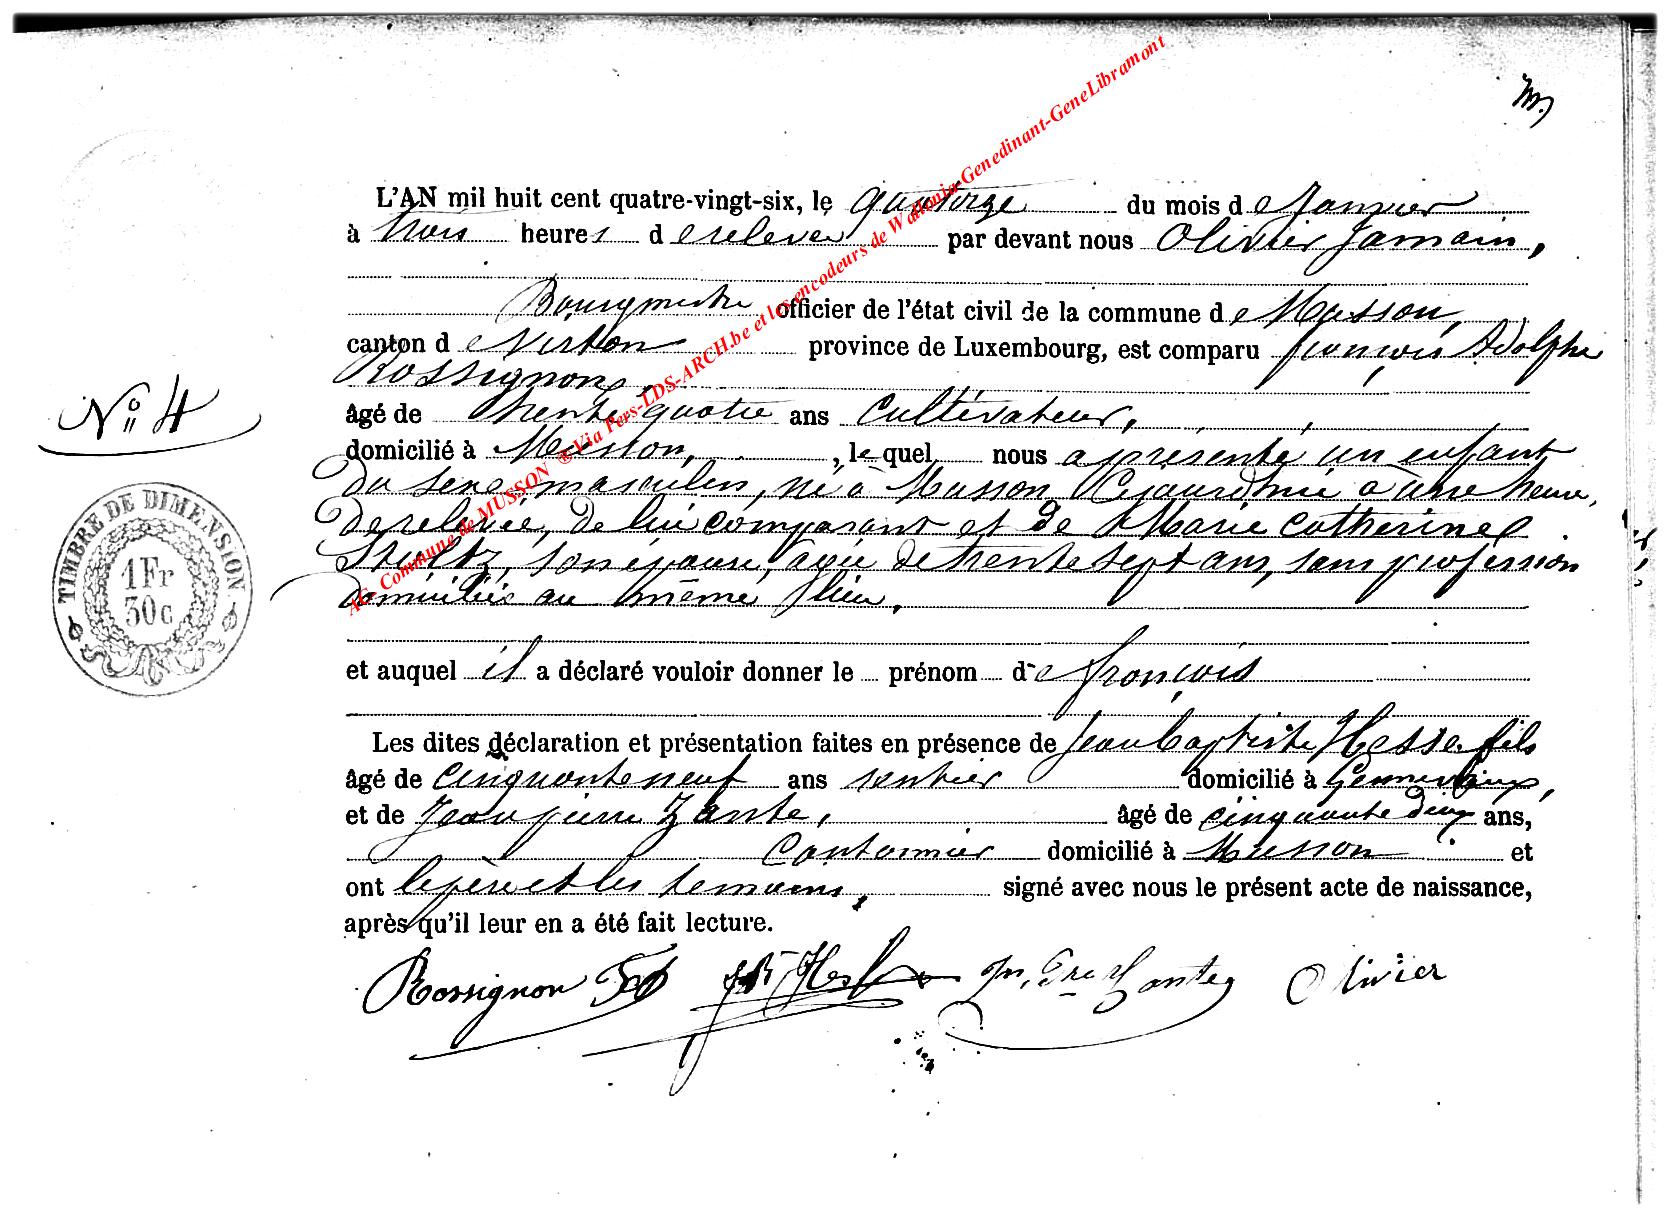 L'AN mil huit cent quatre-vingt-six, le quatorze du mois de Janvier
à trois heures de relevée par devant nous Olivier Jamain,
Bourgmestre officier de l'état civil de la commune de Musson,
canton de Virton province de Luxembourg, est comparu françois Adolphe
Rossignon,
âgé de trente quatre ans Cultivateur,
domicilié à Musson, , lequel nous a présenté un enfant
Du sexe masculin, né à Musson Cejourdhui à une heure,
De relevée, de lui comparant et de Marie Catherine
son épouse, agée de trente sept ans, sans profession
domiciliés au même lieu.
et auquel il a déclaré vouloir donner le prénom de françois
Les dites déclaration et présentation faites en présence de Jean baptiste Hesse fils
âgé de cinquante neuf ans rentier domicilié à Gennevaux,
et de Jean pierre Zante, âgé de cinquante deux ans,
Cantonnier domicilié à Musson et
ont le père et les témoins, signé avec nous le présent acte de naissance,
après qu'il leur en a été fait lecture.
No 4
TIMBRE DE DIMENSION
1 Fr
30 c
Rossignon JBt Hesse Jn. Pre Zante Olivier
Commune de MUSSON ® Via Pers-LDS-ARCH.be et les encodeurs de Wallonia-Genedinant-GeneLibramont